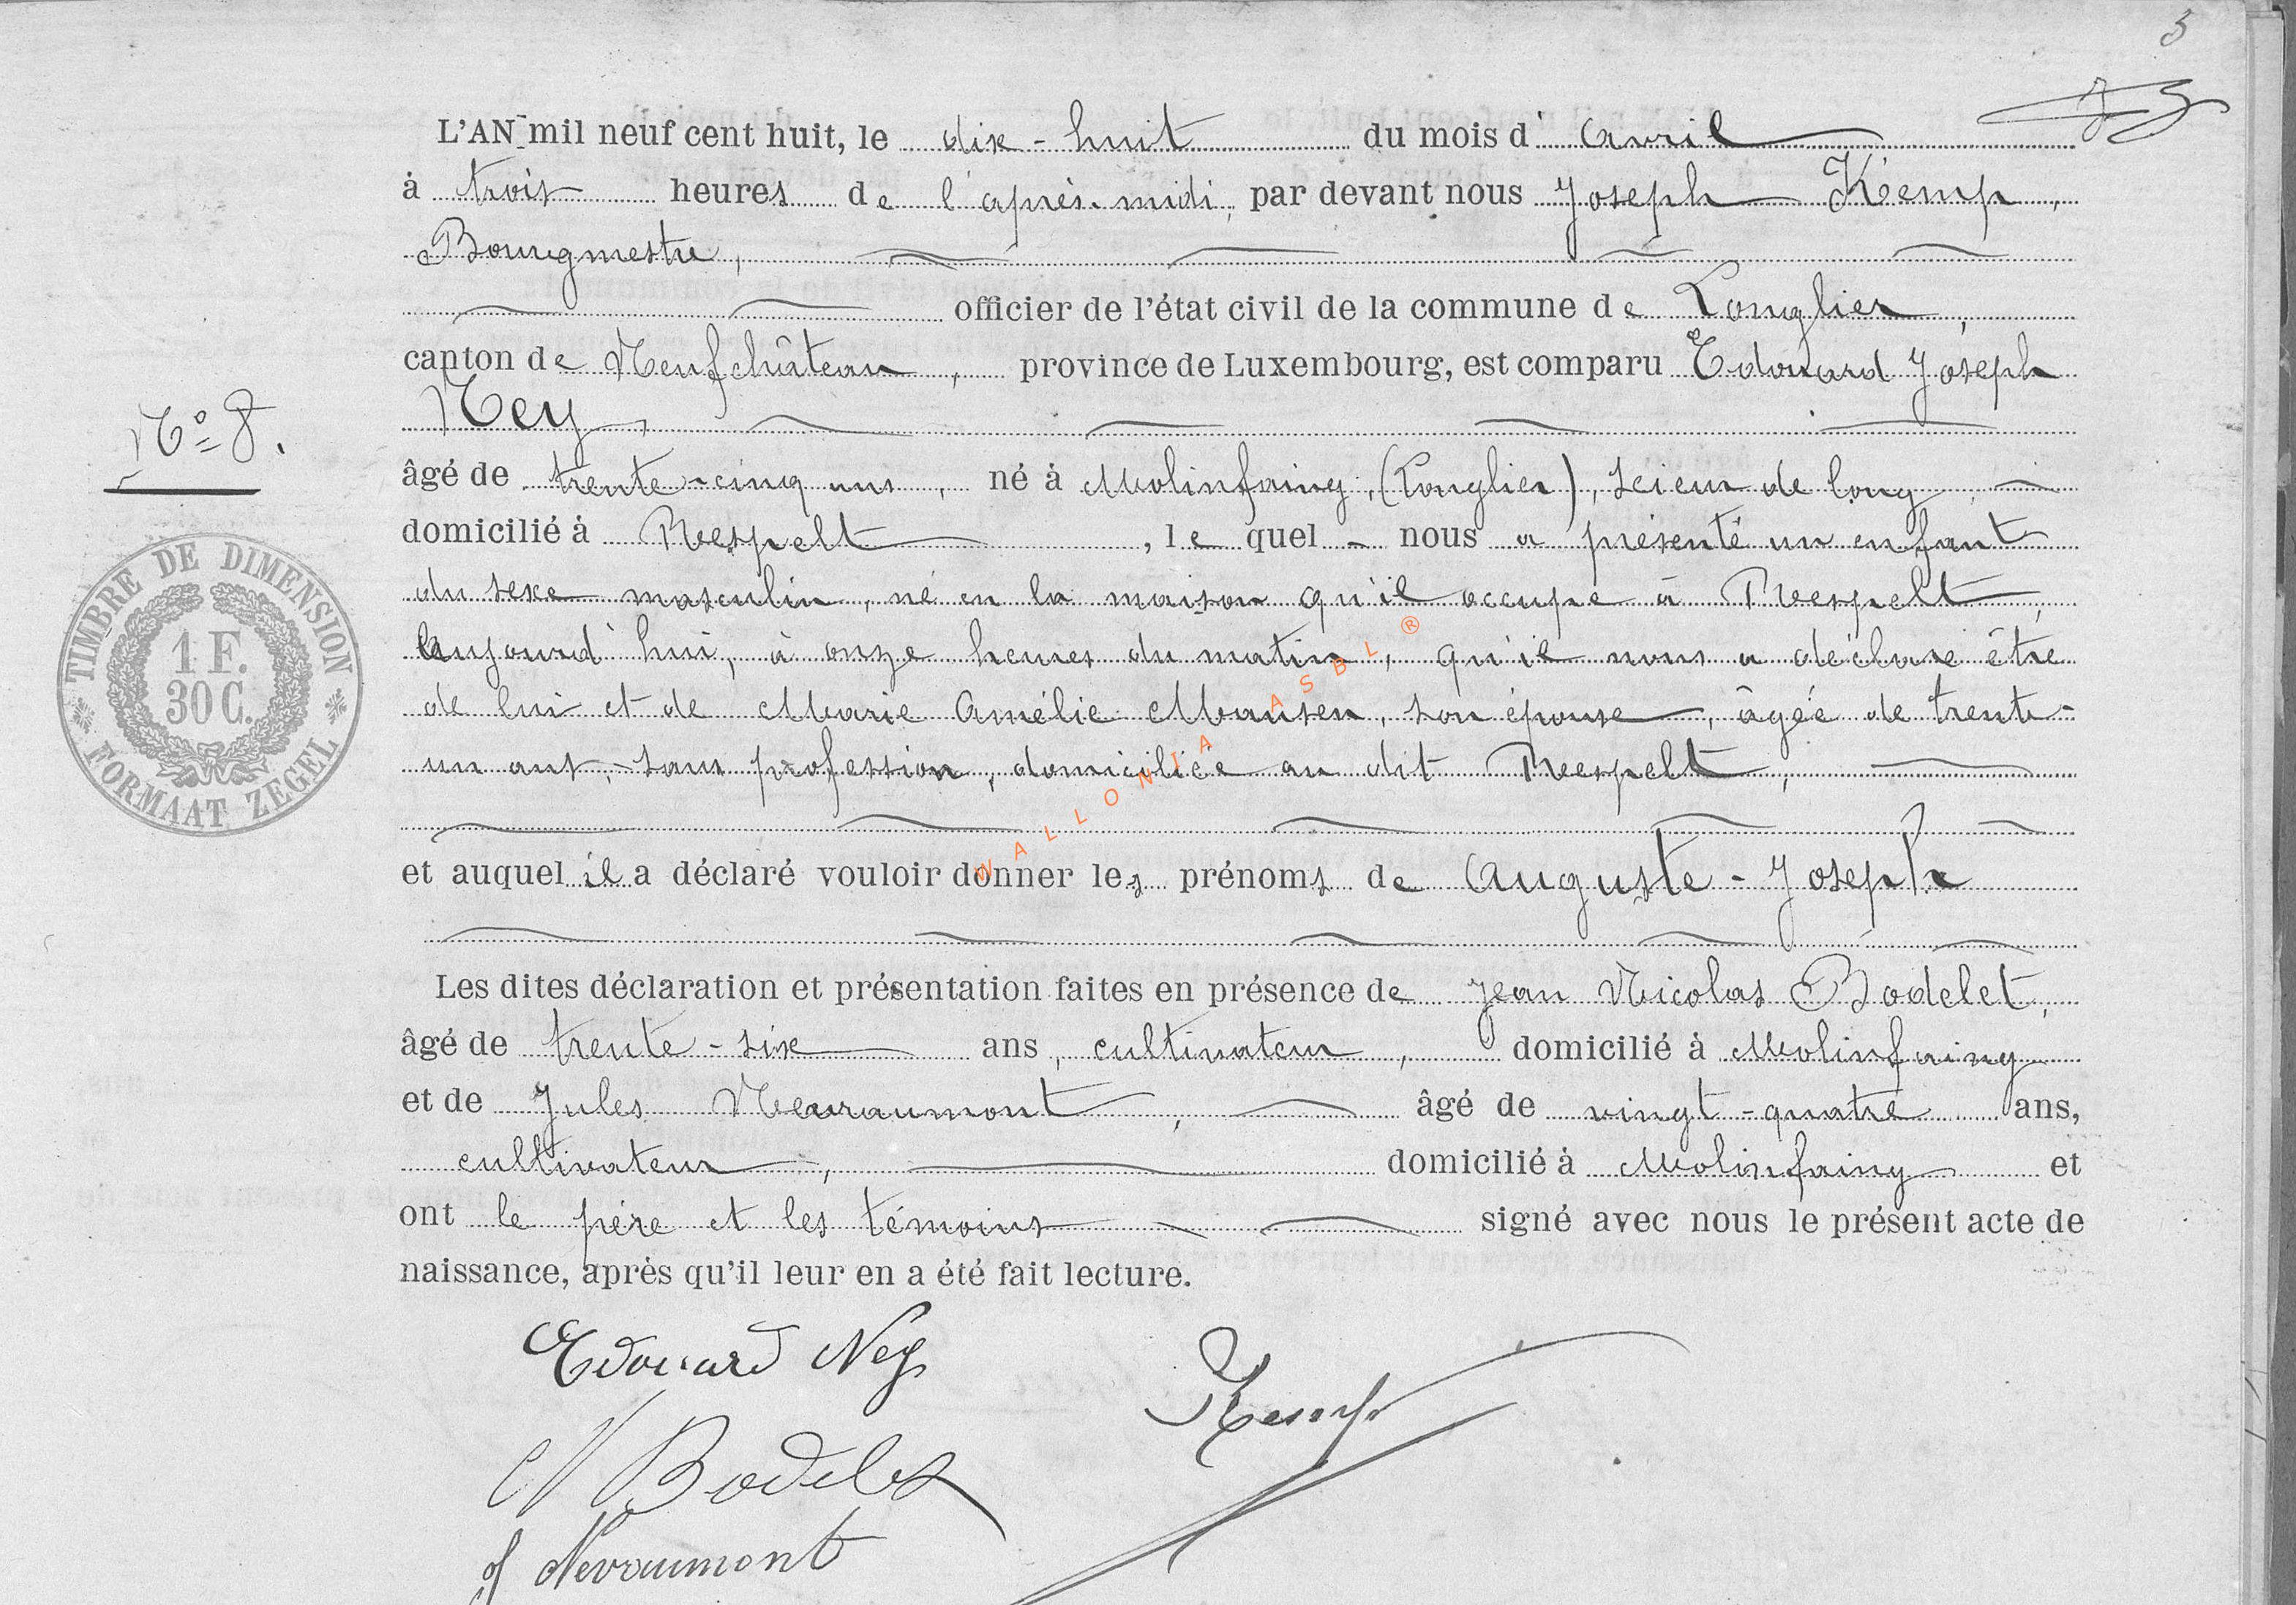 5
L'AN mil neuf cent huit, le dix-huit du mois d'avril
à trois heures de l'après-midi, par devant nous Joseph Kemp,
Bourgmestre,
officier de l'état civil de la commune de Longlier,
canton de Neufchâteau, province de Luxembourg, est comparu Edouard Joseph
Ney,
N° 8.
âgé de trente-cinq ans, né à Molinfaing, (Longlier), scieur de long,
domicilié à Respelt, le quel - nous a présenté un enfant
du sexe masculin, né en la maison qu'il occupe à Respelt,
aujourd'hui, à onze heures du matin, qu'il nous a déclaré être
de lui et de Marie Amélie Mausen, son épouse, âgée de trente-
un ans, sans profession, domiciliée au dit Respelt,
et auquel il a déclaré vouloir donner les prénoms de Auguste-Joseph
Les dites déclaration et présentation faites en présence de Jean Nicolas Bodelet,
âgé de trente-six ans, cultivateur, domicilié à Molinfaing
et de Jules Nevraumont, âgé de vingt-quatre ans,
cultivateur, domicilié à Molinfaing et
ont le père et les témoins signé avec nous le présent acte de
naissance, après qu'il leur en a été fait lecture.
Edouard Ney
Kemp
N Bodelet
J Nevraumont
TIMBRE DE DIMENSION
1 F.
30 C.
FORMAAT ZEGEL
WALLONIA ASBL ®